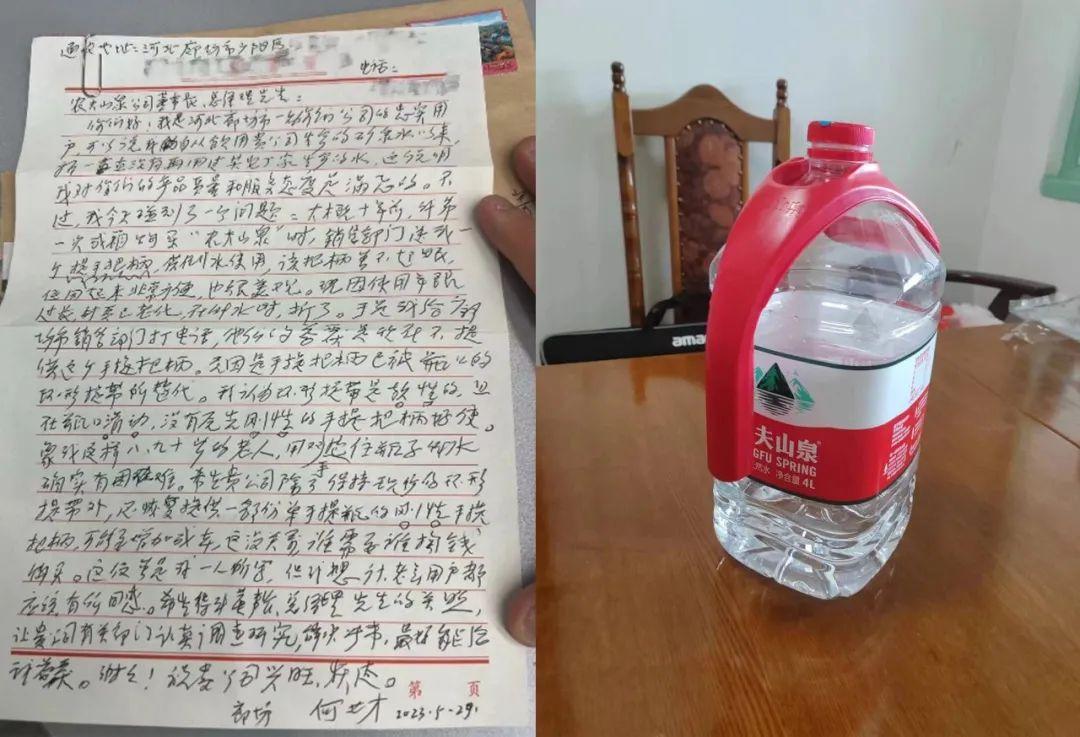 通收地址：河北廊坊市夕阳区
电话：
农夫山泉公司董事长、总经理先生：
你们好！我是河北廊坊市一位你们公司的忠实用
户，可以说自从饮用贵公司生产的矿泉水以来，
我一直没有再用过其它厂家生产的水，这说明
我对你们的产品质量和服务态度是满意的。不
过，我今天碰到了一个问题：大概十年前，我第
一次成箱购买“农夫山泉”时，销售部门送我一
个提手把柄，供倒水使用，该把柄虽不起眼，
使用起来非常方便，也很美观。现因使用年限
过长，材质已老化，在倒水时，折了。于是我给廊
坊市销售部门打电话，他们的答案是现已不提
供这个手提把柄。原因是手提把柄已被瓶口的
环形提带所替代。我认为环形提带是软性的，且
在瓶口滑动，没有原先刚性的手提把柄好使。
象我这样八、九十岁的老人，用双手往瓶子倒水
确实有困难。希望贵公司除了保持现有的环形
提带外，还恢复提供一部份单手操瓶的刚性手提
把柄，可能会增加成本，这没关系，谁需要谁掏钱
购买。这仅是我一人所写，但我想许多老用户都
应该有同感。希望得到董事长、总经理先生的关照，
让贵公司有关部门认真调查研究，解决此事，最好能给
个答复。谢谢！祝贵公司兴旺、发达。
廊坊 何世才 2023.5.29.
第 页
ama
夫山泉
GFU SPRING
然水 净含量 4L